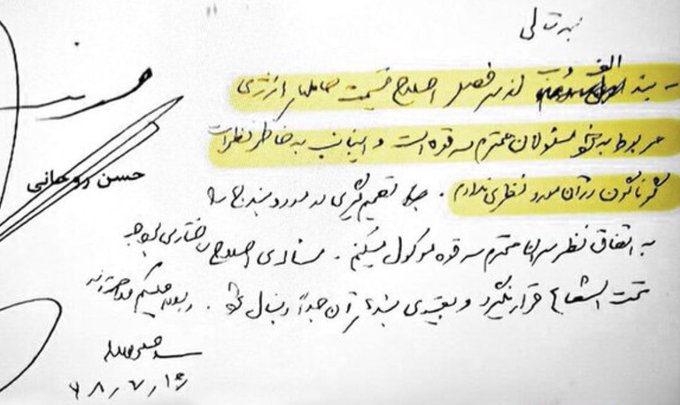 بسمه تعالی
- بند الف و ب از سرفصل اصلاح قیمت حاملهای انرژی
مربوط به مسئولان محترم سه قوه است و اینجانب به خاطر نظرات
گوناگون در آن مورد نظری ندارم. تصمیم‌گیری در مورد بند ج را
به اتفاق نظر سران محترم سه قوه موکول میکنم. اصلاح ساختاری بودجه
تحت الشعاع قرار نگیرد و بقیه‌ی بندهای آن جداً دنبال شود. والسلام علیکم و رحمة الله
سید علی خامنه‌ای
۹۸/۷/۱۶
حسن روحانی